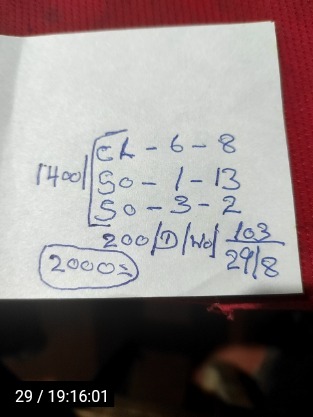 CL - 6 - 8
1400/ So - 1 - 13
So - 3 - 2
200/D/Wo/ 103
29/8
2000=
29 / 19:16:01